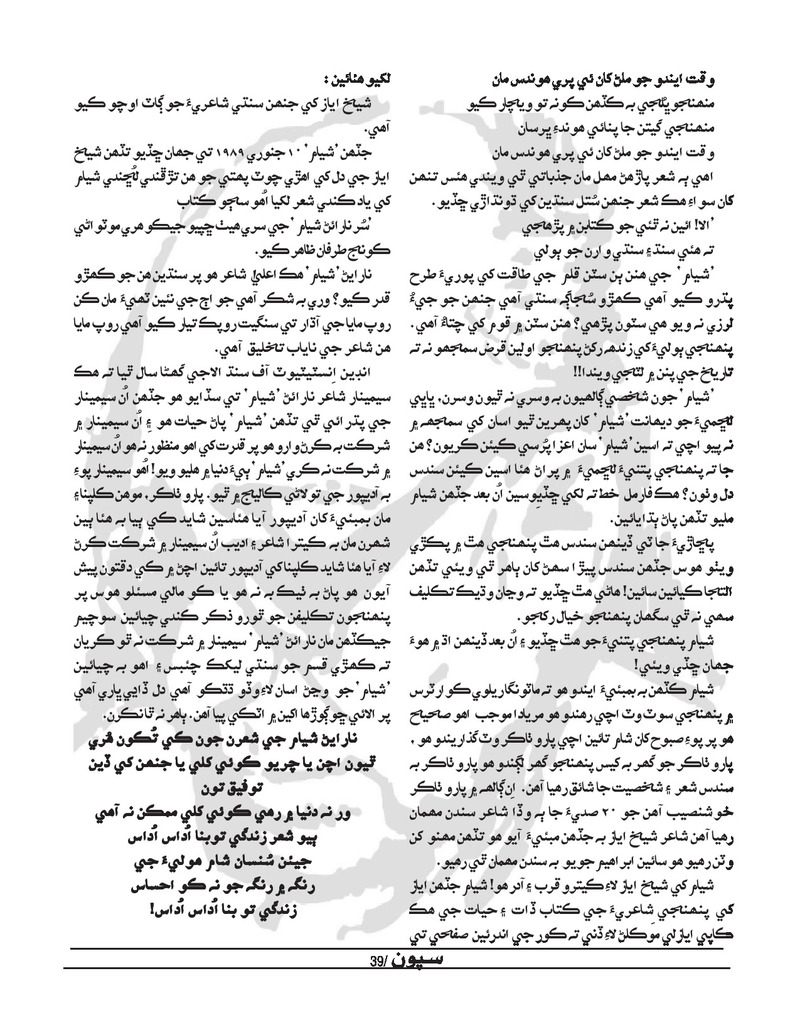 وقت ايندو جو ملڻ کان ئي پري هوندس مان
منهنجو پڻجي به ڪڏهن ڪونه تو ويچار ڪيو
منهنجي گيتن جا پنائي هوندءِ ڀرسان
وقت ايندو جو ملڻ کان ئي پري هوندس مان
اهي ٻه شعر پاڙهڻ مهل مان جذباتي ٿي ويندي هئس تنهن
کان سواءِ هڪ شعر جنهن سُتل سنڌين کي ڌونڌاڙي ڇڏيو .
’الا! ائين نه ٿئي جو ڪتابن ۾ پڙهجي
ته هئي سنڌ ۽ سنڌي وارن جو ٻولي
’شيام‘ جي هنن ٻن سٽن قلم جي طاقت کي پوريءَ طرح
پڌرو ڪيو آهي ڪهڙو سُڃاڻه سنڌي آهي جنهن جو جيءُ
لرزي نه ويو هي سٽون پڙهي؟ هنن سٽن ۾ قوم کي چتاءُ آهي .
پنهنجي ٻوليءَ کي زندهه رکڻ پنهنجو اولين فرض سمجهو نه ته
تاريخ جي پنن ۾ لٽجي ويندا!!
’شيام‘ جون شخصي ڳالهيون به وسري نه ٿيون وسرن، ڀاڀي
لڇميءَ جو ديهانت ’شيام‘ کان پهرين ٿيو اسان کي سمجهه ۾
نه پيو اچي ته اسين ’شيام‘ سان اعزا پُرسي ڪيئن ڪريون؟ هن
جا ته پنهنجي پتنيءَ لڇميءَ ۾ پراڻ هئا اسين ڪيئن سندس
دل وٺون؟ هڪ فارمل خط ته لکي ڇڏيوسين اُن بعد جڏهن شيام
مليو تڏهن پاڻ ٻڌايائين.
پڇاڙيءَ جا ٽي ڏينهن سندس هٿ پنهنجي هٿ ۾ پڪڙي
ويٺو هوس جڏهن سندس پيڙا سهڻ کان ٻاهر ٿي ويئي تڏهن
التجا ڪيائين سائين! هاڻي هٿ ڇڏيو ته وڃان وڌيڪ تڪليف
سهي نه ٿي سگهان پنهنجو خيال رکجو.
شيام پنهنجي پتنيءَ جو هٿ ڇڏيو ۽ اُن بعد ڏينهن اڌ ۾ هوءَ
جهان ڇڏي ويئي!
شيام ڪڏهن به بمبئيءَ ايندو هو ته ماٽونگا ريلوي ڪوارٽرس
۾ پنهنجي سوٽ وٽ اچي رهندو هو مريادا موجب اهو صحيح
هو پر پوءِ صبوح کان شام تائين اچي پارو ٺاڪر وٽ گذاريندو هو ,
پارو ٺاڪر جو گهر به کيس پنهنجو گهر لڳندو هو پارو ٺاڪر به
سندس شعر ۽ شخصيت جا شائق رهيا آهن. اِن ڳالهه ۾ پارو ٺاڪر
خوشنصيب آهن جو ۲۰ صديءَ جا ٻه وڏا شاعر سندن مهمان
رهيا آهن شاعر شيخ اياز به جڏهن مبئيءَ آيو هو تڏهن مهنو کن
وٽن رهيو هو سائين ابراهيم جويو به سندن مهمان ٿي رهيو.
شيام کي شيخ اياز لاءِ ڪيترو قرب ۽ آدر هو! شيام جڏهن اياز
کي پنهنجي شاعريءَ جي ڪتاب ڏات ۽ حيات جي هڪ
ڪاپي اياز لي موڪلڻ لاءِ ڏني ته ڪور جي اندرئين صفحي تي
لکيو هئائين :
شيخ اياز کي جنهن سنڌي شاعريءَ جو ڳاٽ اوچو ڪيو
آهي.
جڏهن ’شيام‘ ۱۰ جنوري ۱۹۸۹ تي جهان ڇڏيو تڏهن شيخ
اياز جي دل کي اهڙي چوٽ پهتي جو هن تڙڦندي لُڇندي شيام
کي ياد ڪندي شعر لکيا اُهو سڄو ڪتاب
’سُر نارائڻ شيام ‘جي سري هيٺ ڇپيو جيڪو هري موٽواڻي
ڪونج طرفان ظاهر ڪيو.
نارايڻ ’شيام‘ هڪ اعليٰ شاعر هو پر سنڌين هن جو ڪهڙو
قدر ڪيو؟ وري به شڪر آهي جو اڄ جي نئين ٽهيءَ مان ڪن
روپ مايا جي آڌار تي سنگيت روپڪ تيار ڪيو آهي روپ مايا
هن شاعر جي ناياب تخليق آهي.
انڊين اِنسٽيٽيوٽ آف سنڌ الاجي گهڻا سال ٿيا ته هڪ
سيمينار شاعر نارائڻ ’شيام‘ تي سڏايو هو جڏهن اُن سيمينار
جي پڌرائي ٿي تڏهن ’شيام‘ پاڻ حيات هو ۽ اُن سيمينار ۾
شرڪت به ڪرڻ وارو هو پر قدرت کي اهو منظور نه هو اُن سيمينار
۾ شرڪت نه ڪري ’شيام‘ ٻيءَ دنيا ۾ هليو ويو! اُهو سيمينار پوءِ
به آديپور جي تولاڻي ڪاليج ۾ ٿيو. پارو ٺاڪر، موهن ڪلپنا ۽
مان بمبئيءَ کان آديپور آيا هئاسين شايد کي ٻيا به هئا ٻين
شهرن مان به ڪيترا شاعر ۽ اديب اُن سيمينار ۾ شرڪت ڪرڻ
لاءِ آيا هئا شايد ڪلپنا کي آديپور تائين اچڻ ۾ کي دقتون پيش
آيون هو پاڻ به ٺيڪ به نه هو يا ڪو مالي مسئلو هوس پر
پنهنجون تڪليفن جو ٿورو ذڪر ڪندي چيائين سوچيم
جيڪڏهن مان نارائڻ ’شيام‘ سيمينار ۾ شرڪت نه ٿو ڪريان
ته ڪهڙي قسم جو سنڌي ليکڪ چئبس ۽ اهو به چيائين
’شيام‘ جو وڃڻ اسان لاءِ وڏو ڌڪو آهي دل ڏاڍي ڀاري آهي
پر الائي ڇو ڳوڙها اکين ۾ اٽڪي پيا آهن. ٻاهر نه ٿا نڪرن.
نارايڻ شيام جي شعرن جون کي تُڪون ڦري
ٿيون اچن يا چريو ڪوئي کلي يا جنهن کي ڏين
توفيق تون
ور نه دنيا ۾ رهي ڪوئي کلي ممڪن نه آهي
ٻيو شعر زندگي توبنا اُداس اُداس
جيئن سُنسان شام هوليءَ جي
رنگ ۾ رنگ جو نه ڪو احساس
زندگي تو بنا اُداس اُداس!
سپون /39